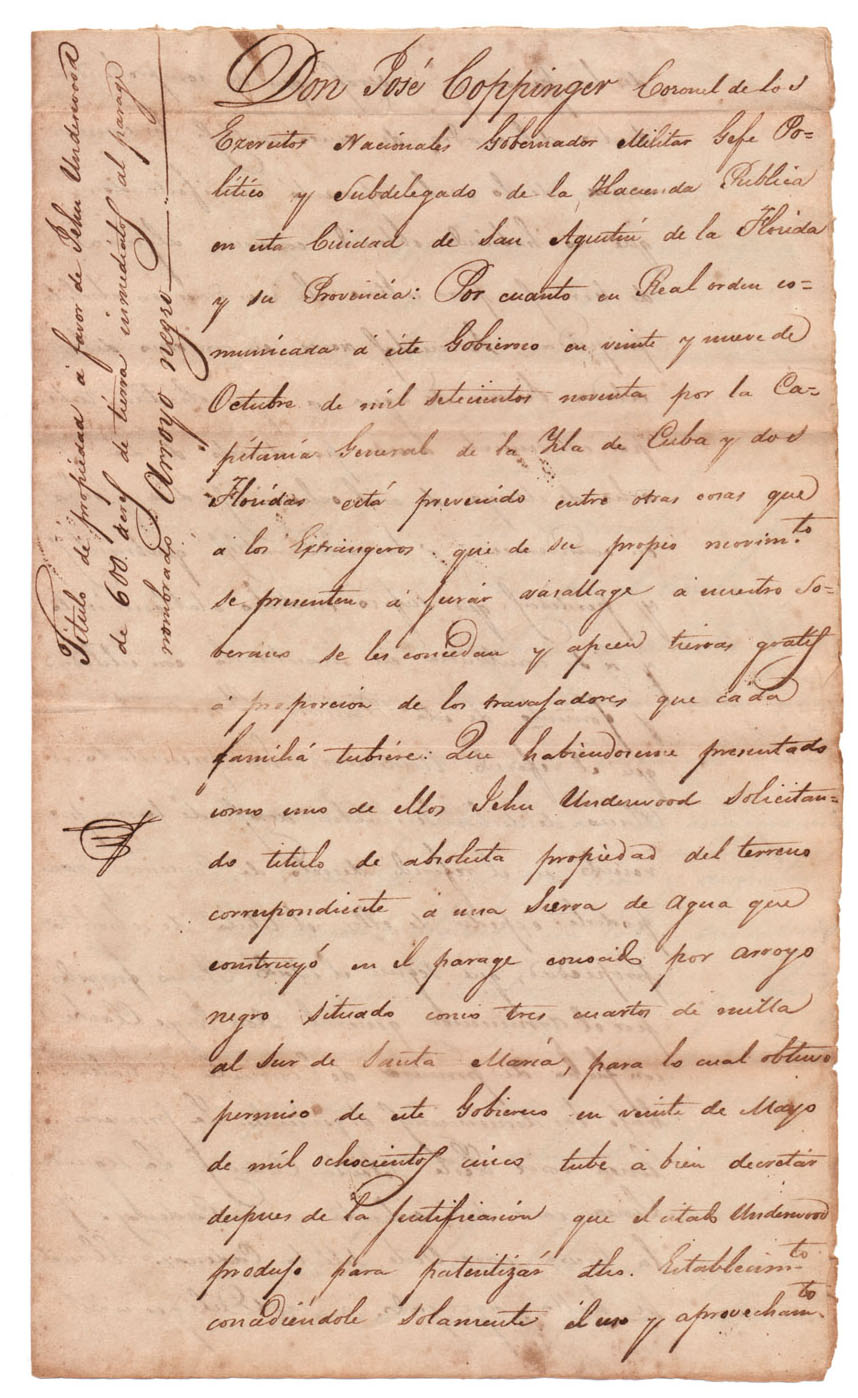 Titulo de propiedad á favor de Jehu Underwood
de 600 acres de tierra inmediatos al parage
nombrado Arroyo negro
Don José Coppinger Coronel de los
Exercitos Nacionales Gobernador Militar Gefe Po=
litico y Subdelegado de la Hacienda Publica
en esta Ciudad de San Agustin de la Florida
y su Provincia: Por cuanto en Real orden co=
municada á este Gobierno en veinte y nueve de
Octubre de mil setecientos noventa por la Ca=
pitania General de la Ysla de Cuba y dos
Floridas está prevenido entre otras cosas que
á los Extrangeros que de su propio movim.to
se presenten á jurár vasallage á nuestro So=
berano se les concedan y apeen tierras gratis
á proporcion de los travajadores que cada
familiá tubiére: Que habiendoseme presentado
como uno de ellos Jehu Underwood solicitan=
do titulo de absoluta propiedad del terreno
correspondiente á una Sierra de agua que
construyó en el parage conocido por arroyo
negro situado como tres cuartos de milla
al Sur de Santa María, para lo cual obtuvo
permiso de este Gobierno en veinte de Mayo
de mil ochocientos cinco tube á bien decretár
despues de la justificasión que el citado Underwood
produjo para patentizár dho. Establecim.to
concediéndole solamente él uso y aprovecham.to